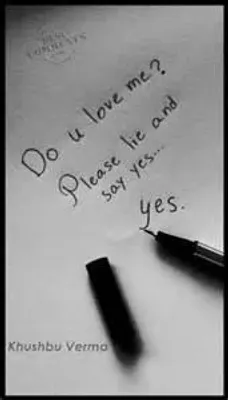 BEST
COMMENTS
Do u love me?
Please lie and
say yes...
yes.
Khushbu Verma